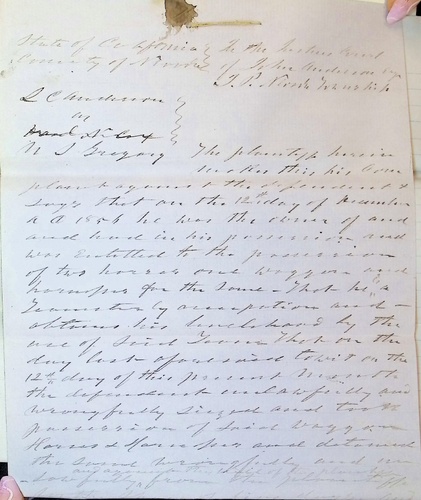 State of California } In the Justice Court
County of Nevada } of John Anderson
J. P. Nevada Township
L C Anderson
vs
N J Gregory
The plaintiff herein
makes this his com
plaint against the defendant &
says that on the 12th day of December
A D 1856 he was the owner of and
and had in his possession and
was entitled to the possession
of two horses one waggon and
harness for the same - That he is a
Teamster by occupation and
obtains his livelihood by the
use of said Team That on the
day last aforesaid to wit on the
12th day of this present Month
the defendant unlawfully and
wrongfully siezed and took
possession of said waggon
Horses & Harness and detained
the same wrongfully and un
lawfully from the plaintiff